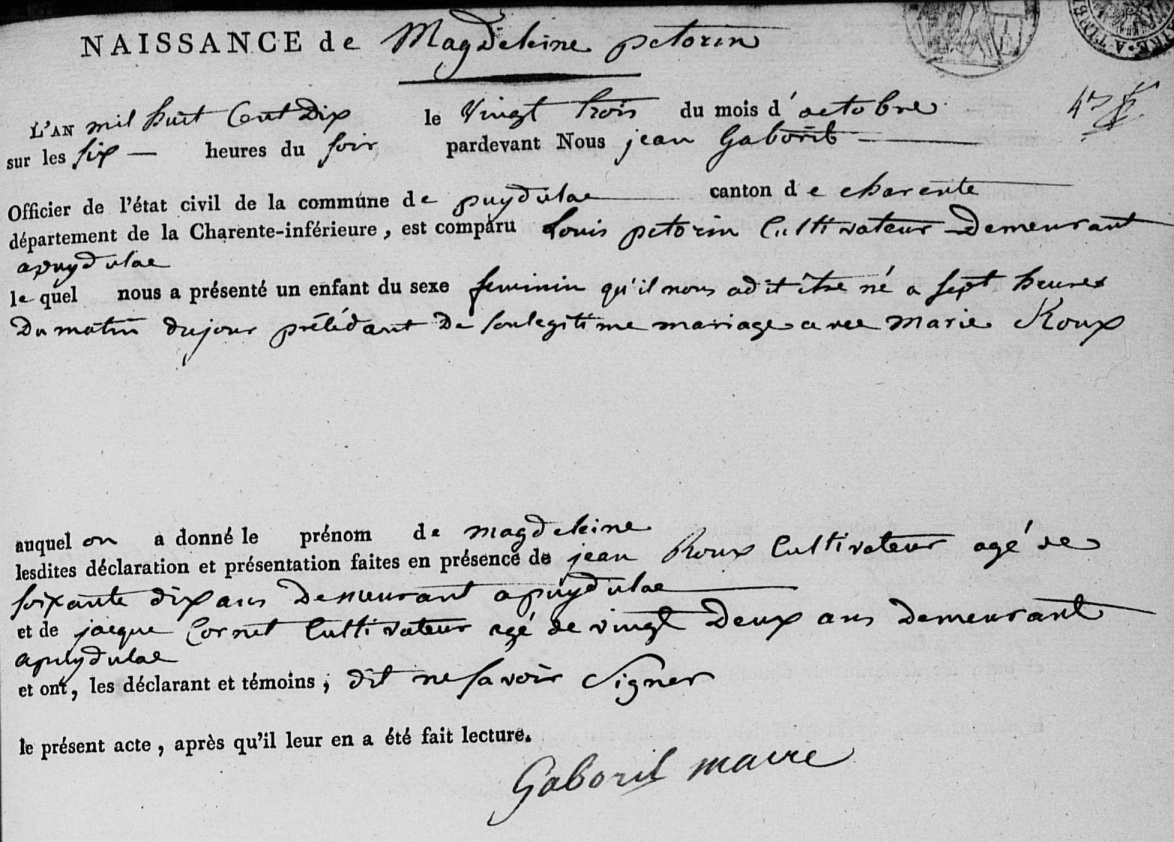 NAISSANCE de Magdeleine petorin
L'AN mil huit Cent Dix le Vingt trois du mois d' octobre
sur les six — heures du soir pardevant Nous jean Gaborit
Officier de l'état civil de la commune de puydulac canton de charente
département de la Charente-inférieure, est comparu Louis petorin Cultivateur Demeurant
apuydulac
le quel nous a présenté un enfant du sexe feminin qu'il nous a dit être né a sept heures
Du matin du jour précédant De son legitime mariage avec Marie Roux
auquel on a donné le prénom de magdeleine
lesdites déclaration et présentation faites en présence de jean Roux Cultivateur agé de
soixante dix ans Demeurant a puydulac
et de jacque Cornet Cultivateur agé de vingt Deux ans Demeurant
apuydulac
et ont, les déclarant et témoins, dit ne savoir Signer
le présent acte, après qu'il leur en a été fait lecture.
Gaborit maire